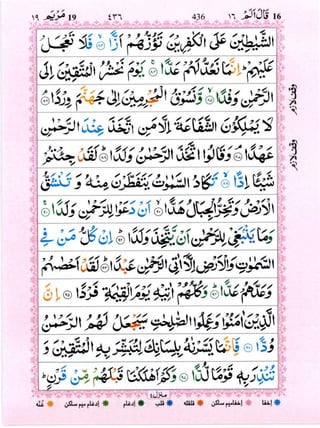 ١٩ مَرْيَم 19 ٤٣٦ 436 قَالَ اَلَمْ ١٦ 16
الشَّيٰطِيْنَ عَلَى الْكٰفِرِيْنَ تَؤُزُّهُمْ اَزًّا ۙ﴿۸۳﴾ فَلَا تَعْجَلْ
عَلَيْهِمْ ؕ اِنَّمَا نَعُدُّ لَهُمْ عَدًّا ۚ﴿۸۴﴾ يَوْمَ نَحْشُرُ الْمُتَّقِيْنَ اِلَى
الرَّحْمٰنِ وَفْدًا ۙ﴿۸۵﴾ وَّنَسُوْقُ الْمُجْرِمِيْنَ اِلٰى جَهَنَّمَ وِرْدًا ۘ﴿۸۶﴾
لَا يَمْلِكُوْنَ الشَّفَاعَةَ اِلَّا مَنِ اتَّخَذَ عِنْدَ الرَّحْمٰنِ
عَهْدًا ۘ﴿۸۷﴾ وَقَالُوا اتَّخَذَ الرَّحْمٰنُ وَلَدًا ؕ﴿۸۸﴾ لَقَدْ جِئْتُمْ
شَيْئًا اِدًّا ۙ﴿۸۹﴾ تَكَادُ السَّمٰوٰتُ يَتَفَطَّرْنَ مِنْهُ وَتَنْشَقُّ
الْاَرْضُ وَتَخِرُّ الْجِبَالُ هَدًّا ۙ﴿۹۰﴾ اَنْ دَعَوْا لِلرَّحْمٰنِ وَلَدًا ۚ﴿۹۱﴾
وَمَا يَنْۢبَغِيْ لِلرَّحْمٰنِ اَنْ يَّتَّخِذَ وَلَدًا ؕ﴿۹۲﴾ اِنْ كُلُّ مَنْ فِي
السَّمٰوٰتِ وَالْاَرْضِ اِلَّاۤ اٰتِي الرَّحْمٰنِ عَبْدًا ؕ﴿۹۳﴾ لَقَدْ اَحْصٰىهُمْ
وَعَدَّهُمْ عَدًّا ؕ﴿۹۴﴾ وَكُلُّهُمْ اٰتِيْهِ يَوْمَ الْقِيٰمَةِ فَرْدًا ﴿۹۵﴾ اِنَّ
الَّذِيْنَ اٰمَنُوْا وَعَمِلُوا الصّٰلِحٰتِ سَيَجْعَلُ لَهُمُ الرَّحْمٰنُ
وُدًّا ﴿۹۶﴾ فَاِنَّمَا يَسَّرْنٰهُ بِلِسَانِكَ لِتُبَشِّرَ بِهِ الْمُتَّقِيْنَ وَ
تُنْذِرَ بِهٖ قَوْمًا لُّدًّا ﴿۹۷﴾ وَكَمْ اَهْلَكْنَا قَبْلَهُمْ مِّنْ قَرْنٍ ؕ
منزل٤
اخفا اخفامیم ساکن قلقلہ قلب ادغام ادغام میم ساکن غنّہ
وقف لازم
وقف لازم